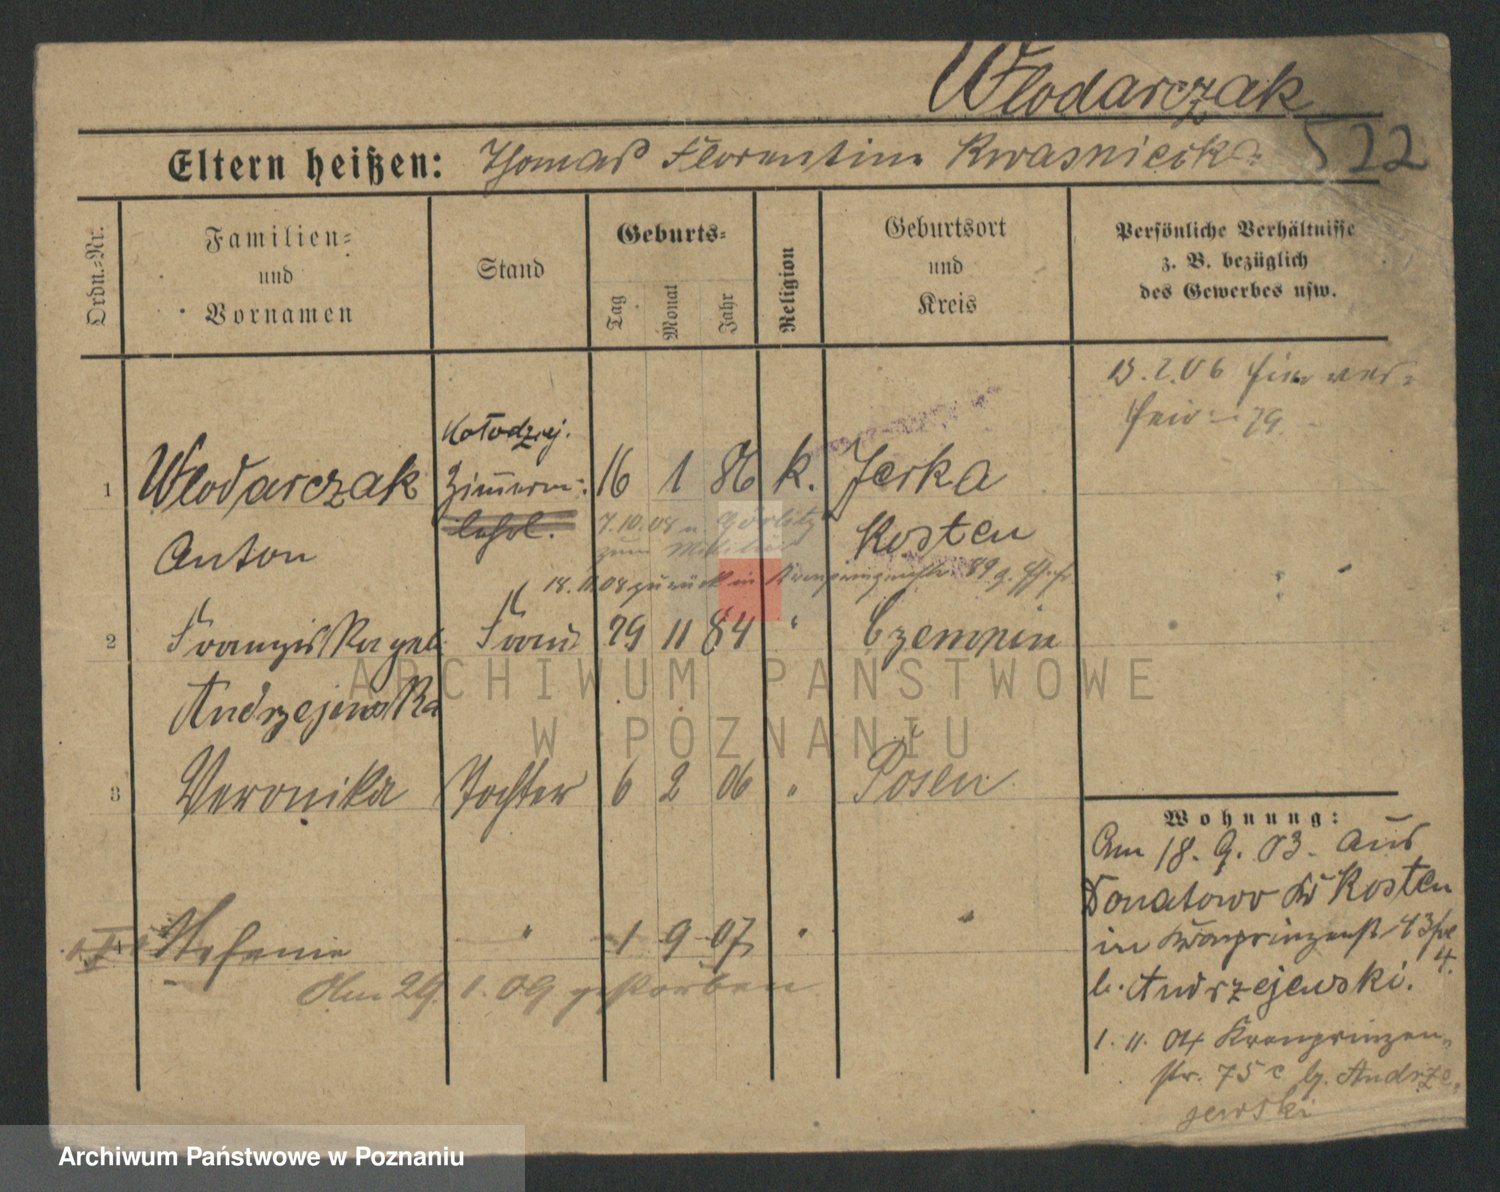 Wlodarczak
Eltern heißen: Thomas Florentine Kwasniecka
522
Ordn.-Nr.
Familien-
und
Vornamen
Stand
Geburts-
Tag
Monat
Jahr
Religion
Geburtsort
und
Kreis
Persönliche Verhältnisse
z. B. bezüglich
des Gewerbes usw.
13.2.06
Kołodziej.
1 Wlodarczak Zimerm-. 16 1 86 k. Jerka
lehrl. 7.10.08 n. Görlitz
Anton zum Militär Kosten
18.11.08 zurück in Kronprinzenstr. 89
2 Franziska geb. Frau 29 11 84 " Czempin
Andrzejewska
ARCHIWUM PAŃSTWOWE
W POZNANIU
3 Veronika Tochter 6 2 06 " Posen
4 Stefanie " 1 9 07 " "
Am 29. 1. 09 gestorben
Wohnung:
Am 18. 9. 03. aus
Donatowo Kr Kosten
in Kronprinzenst
b. Andrzejewski.
1. 11. 04 Kronprinzen-
str. 75c b. Andrze-
jewski
Archiwum Państwowe w Poznaniu